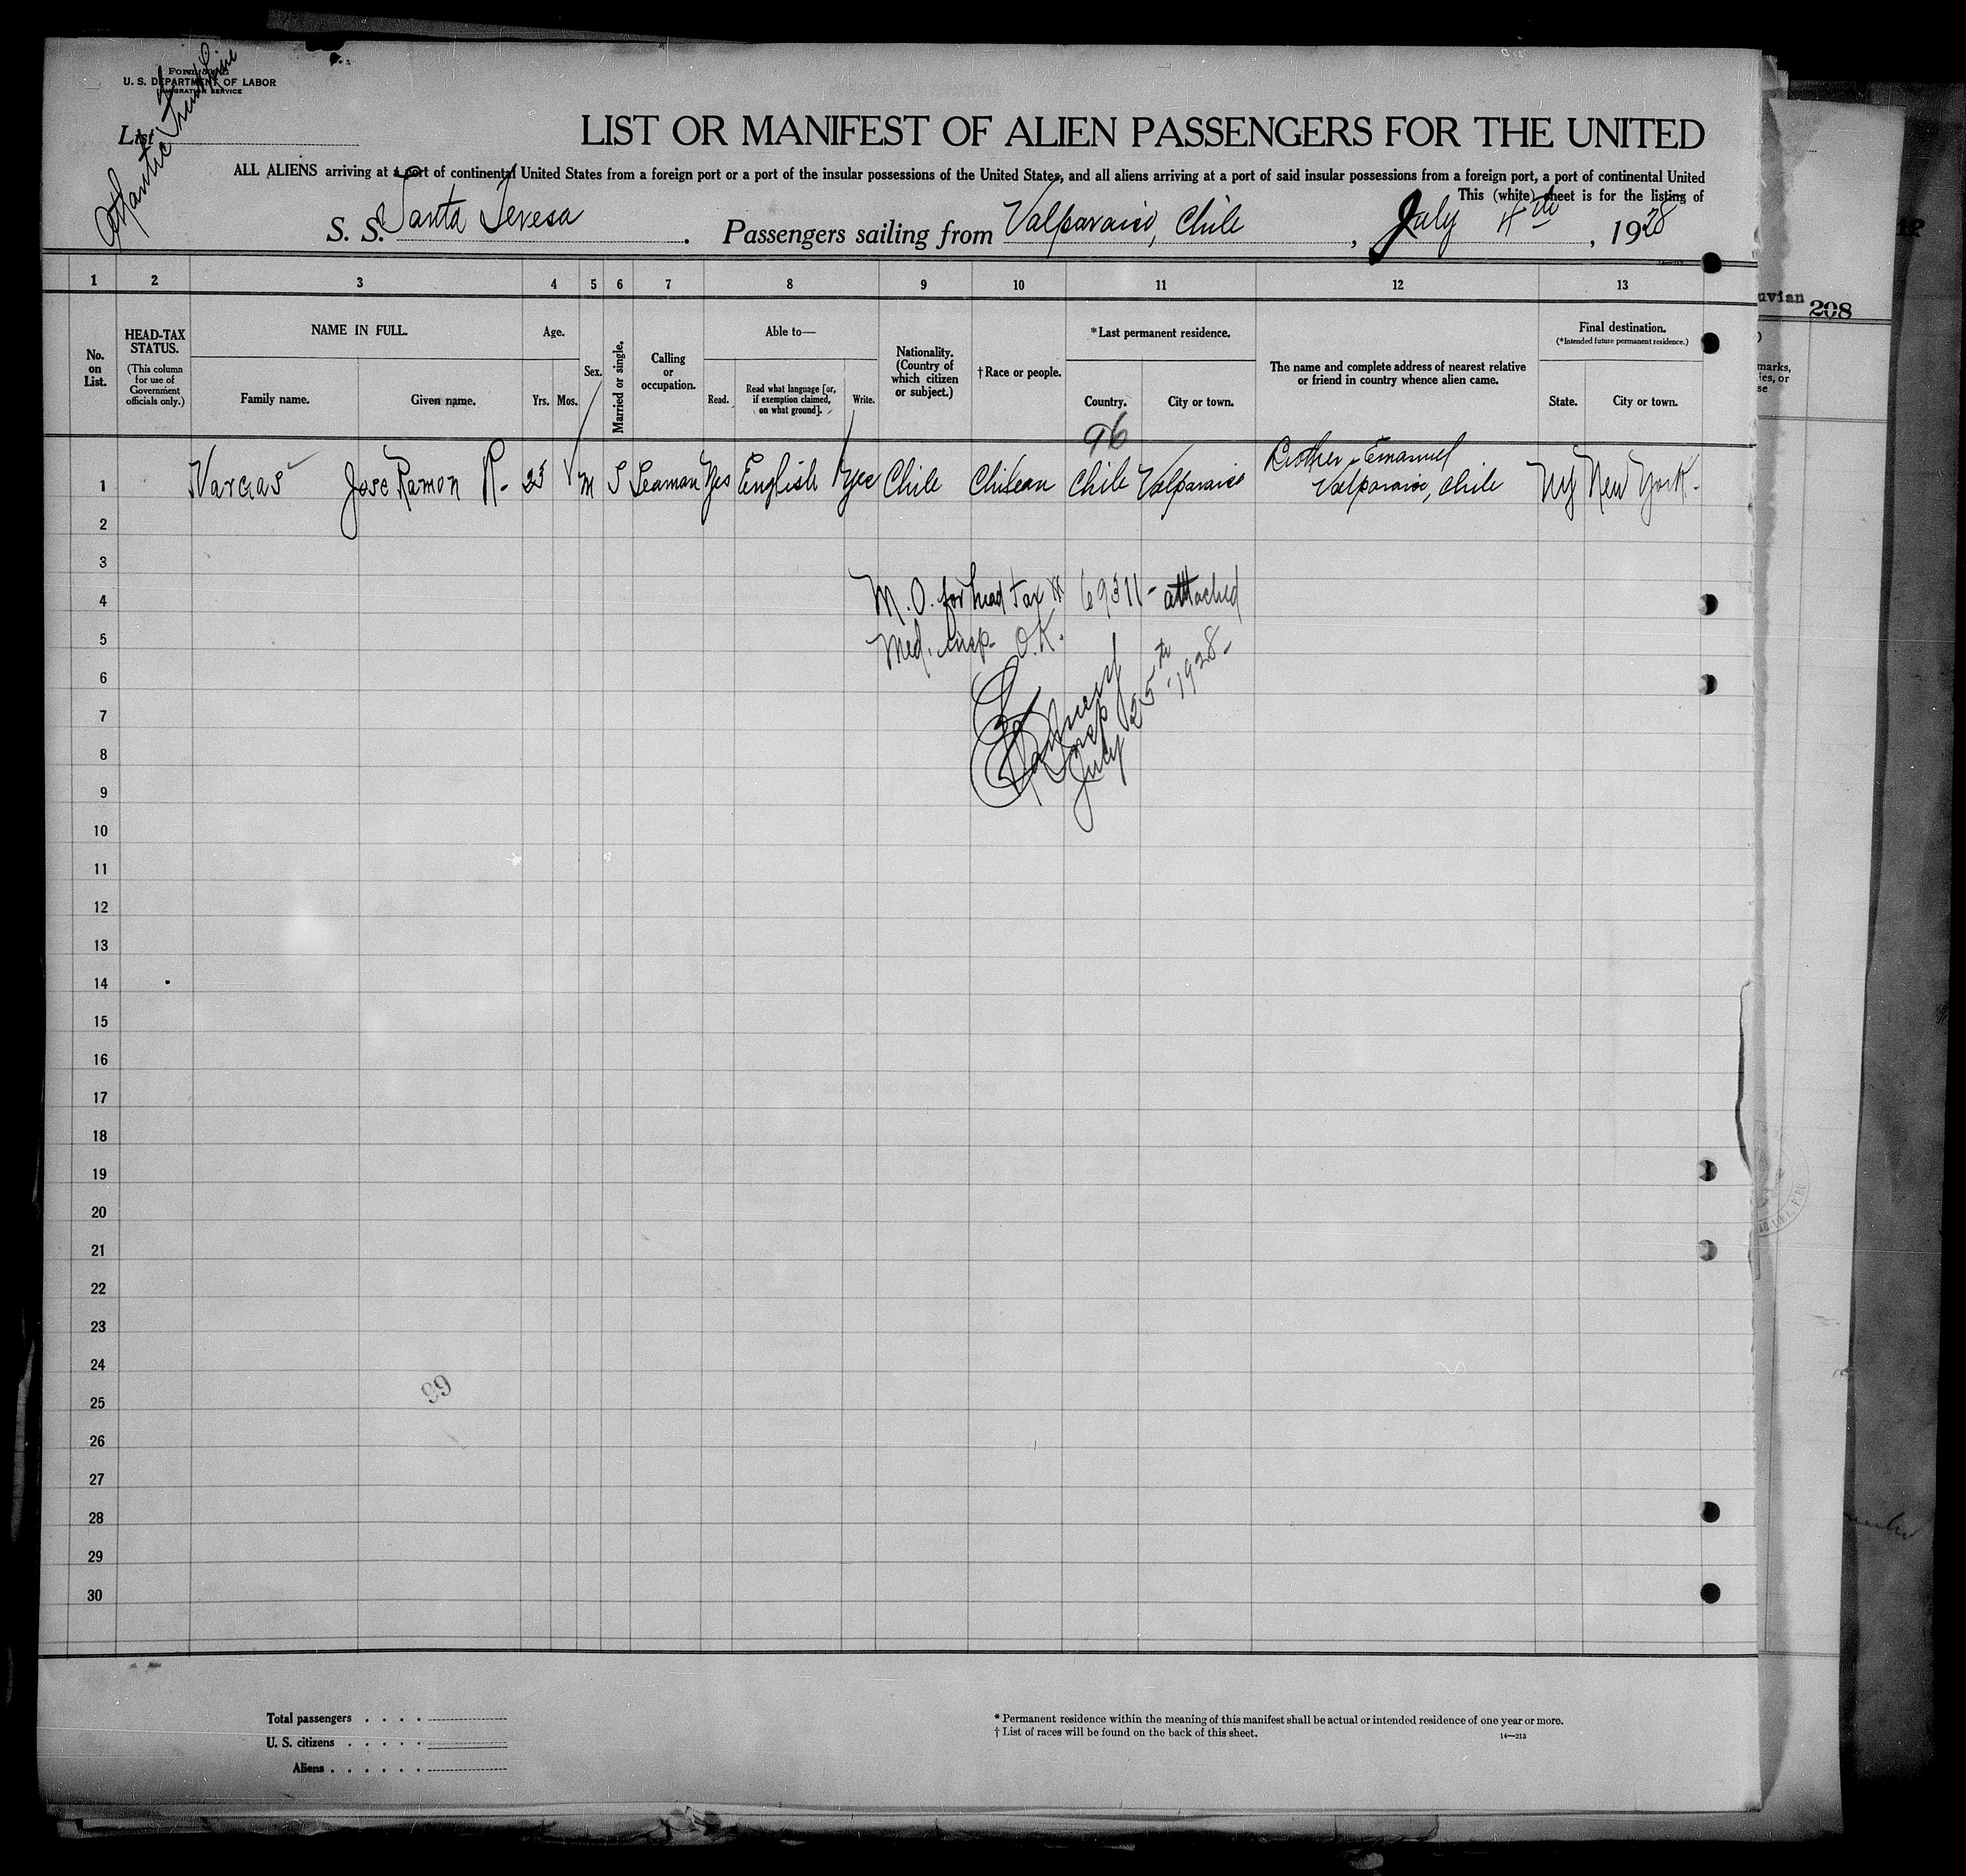 U. S. DEPARTMENT OF LABOR
IMMIGRATION SERVICE
List
Atlantic Fruit Line
LIST OR MANIFEST OF ALIEN PASSENGERS FOR THE UNITED
ALL ALIENS arriving at a port of continental United States from a foreign port or a port of the insular possessions of the United States, and all aliens arriving at a port of said insular possessions from a foreign port, a port of continental United
This (white) sheet is for the listing of
S. S. Santa Teresa. Passengers sailing from Valparaiso, Chile, July 4th, 1928
1 2 3 4 5 6 7 8 9 10 11 12 13
No. on List.
HEAD-TAX STATUS.
(This column for use of Government officials only.)
NAME IN FULL.
Family name. Given name.
Age.
Yrs. Mos.
Sex.
Married or single.
Calling or occupation.
Able to—
Read. Read what language [or, if exemption claimed, on what ground]. Write.
Nationality. (Country of which citizen or subject.)
†Race or people.
*Last permanent residence.
Country. City or town.
The name and complete address of nearest relative or friend in country whence alien came.
Final destination.
(*Intended future permanent residence.)
State. City or town.
96
1 Vargas Jose Ramon R- 25 M S Seaman Yes English Yes Chile Chilean Chile Valparaiso Brother - Emanuel Valparaiso, Chile NY New York-
2
3
M. O. for head tax # 69311- attached
4
5
Med. insp- O.K.
6
7
Insp
July 25th 1928-
8
9
10
11
12
13
14
15
16
17
18
19
20
21
22
23
24
99
25
26
27
28
29
30
Total passengers
U. S. citizens
Aliens
* Permanent residence within the meaning of this manifest shall be actual or intended residence of one year or more.
† List of races will be found on the back of this sheet.
14—213
uvian
208
marks,
ies, or
se
12